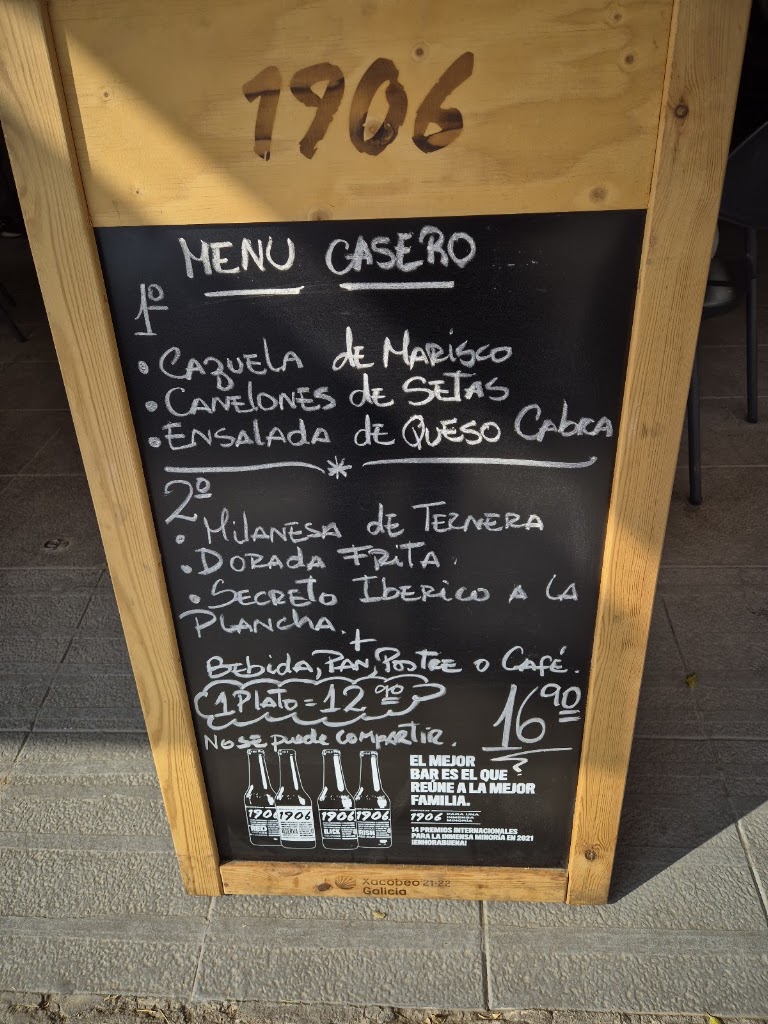 1906
MENU CASERO
1º
• CAZUELA de MARISCO
• CANELONES de SETAS
• ENSALADA de QUESO CABRA
2º
• MILANESA de TERNERA
• DORADA FRITA.
• SECRETO IBERICO A LA
PLANCHA.
+
BEBIDA, PAN, POSTRE o CAFÉ.
1 PLATO = 12 90
16 90
No se puede compartir.
EL MEJOR
BAR ES EL QUE
REÚNE A LA MEJOR
FAMILIA.
1906 PARA UNA INMENSA MINORÍA
14 PREMIOS INTERNACIONALES
PARA LA INMENSA MINORÍA EN 2021
¡ENHORABUENA!
1906 1906 1906 1906
RESERVA BLACK
Xacobeo 21·22
Galicia